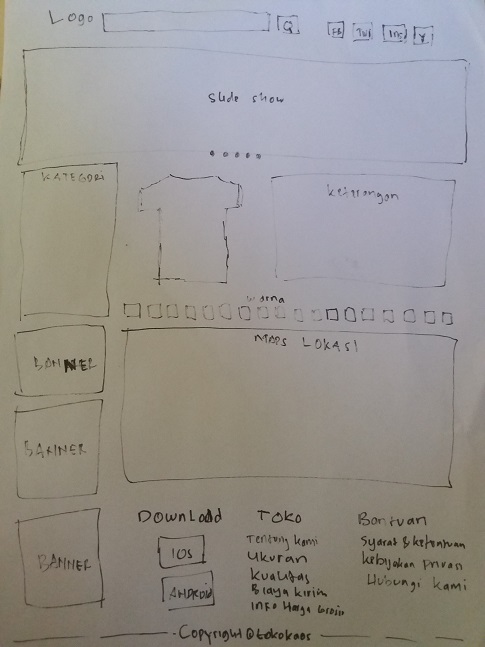 Logo Q FB TWI INS Y
Slide show
KATEGORI
Keterangan
warna
MAPS LOKASI
BANNER
BANNER
BANNER
Download
IOS
ANDROID
Toko
Tentang kami
Ukuran
Kualitas
Biaya kirim
Info Harga Grosir
Bantuan
Syarat & ketentuan
kebijakan Privasi
Hubungi kami
Copyright @tokokaos